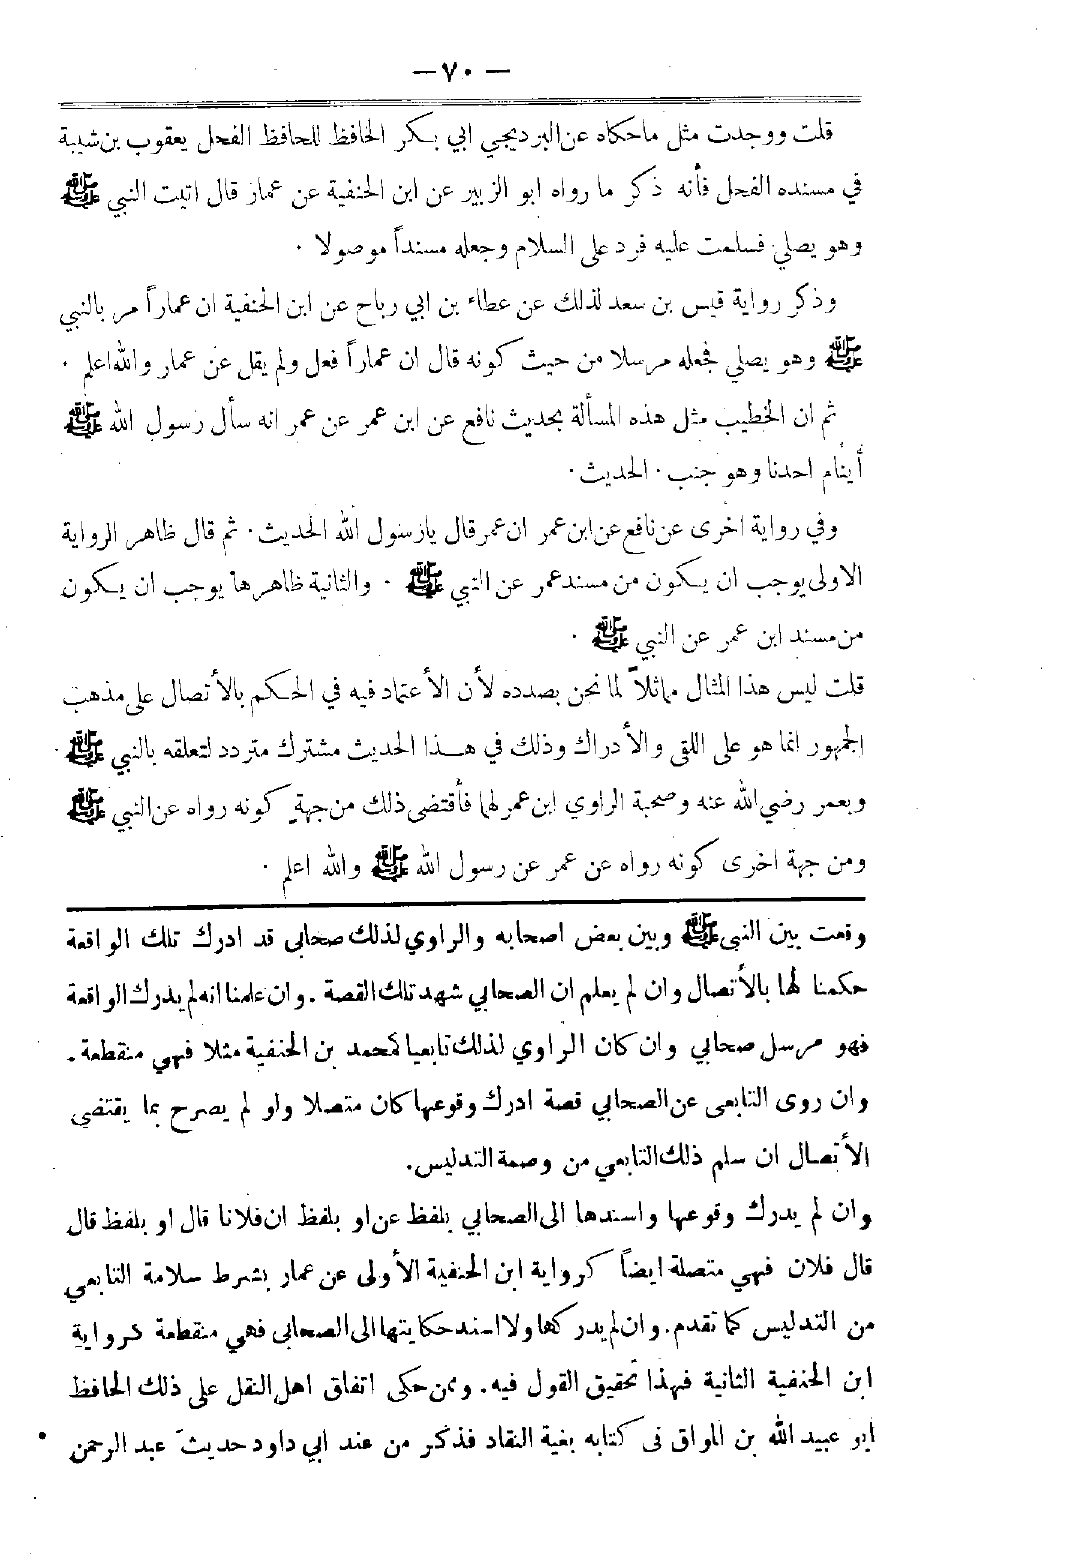 — ٧٠ —
قلت ووجدت مثل ماحكاه عن البرديجي ابي بكر الحافظ للحافظ الفحل يعقوب بن شيبة
في مسنده الفحل فأنه ذكر ما رواه ابو الزبير عن ابن الحنفية عن عمار قال اتيت النبي ﷺ
وهو يصلي فسلمت عليه فرد على السلام وجعله مسنداً موصولا .
وذكر رواية قيس بن سعد لذلك عن عطاء بن ابي رباح عن ابن الحنفية ان عماراً مر بالنبي
ﷺ وهو يصلي فجعله مرسلا من حيث كونه قال ان عماراً فعل ولم يقل عن عمار والله اعلم .
ثم ان الخطيب مثل هذه المسألة بحديث نافع عن ابن عمر عن عمر انه سأل رسول الله ﷺ
أينام احدنا وهو جنب . الحديث .
وفي رواية اخرى عن نافع عن ابن عمر ان عمر قال يارسول الله الحديث . ثم قال ظاهر الرواية
الاولى يوجب ان يكون من مسند عمر عن النبي ﷺ . والثانية ظاهرها يوجب ان يكون
من مسند ابن عمر عن النبي ﷺ .
قلت ليس هذا المثال مماثلاً لما نحن بصدده لأن الأعتماد فيه في الحكم بالأتصال على مذهب
الجمهور انما هو على اللقى والأدراك وذلك في هذا الحديث مشترك متردد لتعلقه بالنبي ﷺ
وبعمر رضي الله عنه وصحبة الراوي ابن عمر لهما فأقتضى ذلك من جهة كونه رواه عن النبي ﷺ
ومن جهة اخرى كونه رواه عن عمر عن رسول الله ﷺ والله اعلم .
وقعت بين النبي ﷺ وبين بعض اصحابه والراوي لذلك صحابى قد ادرك تلك الواقعة
حكمنا لها بالأتصال وان لم يعلم ان الصحابي شهد تلك القصة . وان علمنا انه لم يدرك الواقعة
فهو مرسل صحابي وان كان الراوي لذلك تابعيا كمحمد بن الحنفية مثلا فهي منقطعة .
وان روى التابعى عن الصحابي قصة ادرك وقوعها كان متصلا ولو لم يصرح بما يقتضى
الأتصال ان سلم ذلك التابعي من وصمة التدليس.
وان لم يدرك وقوعها واسندها الى الصحابي بلفظ عن او بلفظ ان فلانا قال او بلفظ قال
قال فلان فهي متصلة ايضاً كرواية ابن الحنفية الأولى عن عمار بشرط سلامة التابعي
من التدليس كما تقدم. وان لم يدركها ولا اسند حكايتها الى الصحابى فهي منقطعة كرواية
ابن الحنفية الثانية فهذا تحقيق القول فيه. وممن حكى اتفاق اهل النقل على ذلك الحافظ
ابو عبيد الله بن المواق فى كتابه بغية النقاد فذكر من عند ابي داود حديث عبد الرحمن